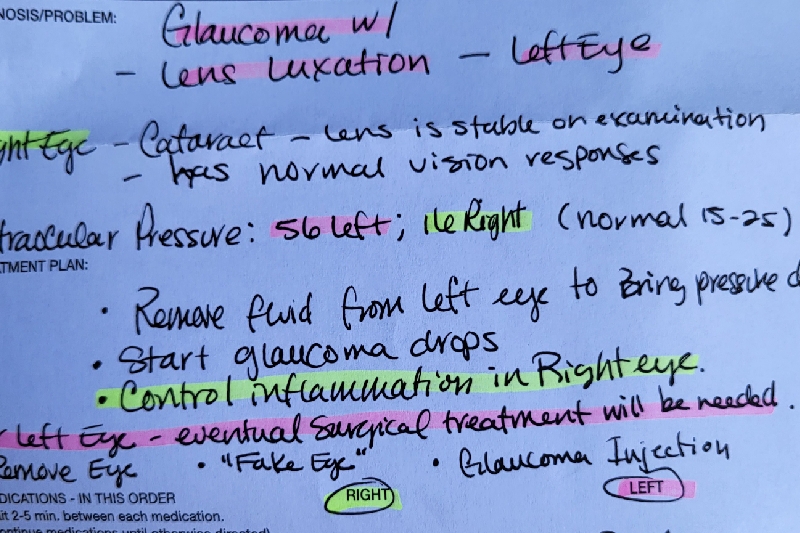 NOSIS/PROBLEM: Glaucoma w/
- Lens Luxation - Left Eye
ght Eye - Cataract - Lens is stable on examination
- has normal vision responses
traocular Pressure: 56 left; 16 Right (normal 15-25)
TMENT PLAN:
• Remove fluid from left eye to Bring pressure d
• Start glaucoma drops
• Control inflammation in Right eye.
left Eye - eventual surgical treatment will be needed.
Remove Eye • "Fake Eye" • Glaucoma Injection
DICATIONS - IN THIS ORDER RIGHT LEFT
it 2-5 min. between each medication.
ontinue medications until otherwise directed)